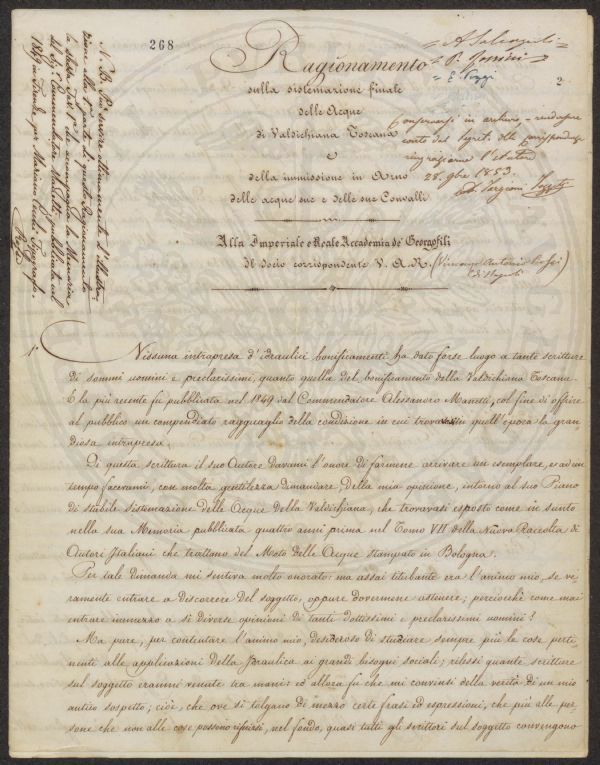 268
= A Salvagnoli =
= P. Gonini =
= E. Poggi
2
Ragionamento
sulla sistemazione finale
delle Acque
di Valdichiana Toscana
e
della immissione in Arno
delle acque sue e delle sue Convalli
Conservarsi in archivio = rendere
conto dal Segret. delle corrispondenze
ringraziarne l'autore
28. 9bre 1853.
Alla Imperiale e Reale Accademia de' Georgofili
Il Socio corrispondente V. A. R. (Vincenzo Antonio Rossi)
di Napoli
N. B. Può servire ottimamente d'illustra-
zione alla 1ª parte di questo Ragionamento
la stessa Tavª 1ª che accompagna la Memoria
del Sigr Commendatore Manetti pubblicata nel
1849 in Firenze per Mariano Cecchi Tipografo.
Rossi
1. Nissuna intrapresa d'idraulici bonificamenti ha dato forse luogo a tante scritture
di sommi uomini e preclarissimi, quanto quella del bonificamento della Valdichiana Toscana.
E la più recente fù pubblicata nel 1849 dal Commendatore Alessandro Manetti, col fine di offrire
al pubblico un compendiato ragguaglio della condizione in cui trovavasi in quell'epoca la gran
diosa intrapresa.
Di questa scrittura il suo Autore davami l'onore di farmene arrivare un esemplare, e ad un
tempo facevami, con molta gentilezza dimandare, della mia opinione, intorno al suo Piano
di stabile sistemazione delle Acque della Valdichiana, che trovavasi esposto come in sunto
nella sua Memoria pubblicata quattro anni prima nel Tomo VII della Nuova Raccolta di
Autori Italiani che trattano del Moto delle Acque stampato in Bologna.
Per tale dimanda mi sentiva molto onorato: ma assai titubante era l'animo mio, se ve-
ramente entrare a descorrere del soggetto, oppure dovermene astenere; perciocchè come mai
entrare immezzo a sì diverse opinioni di tanti dottissimi e preclarissimi uomini?
Ma pure, per contentare l'animo mio, desideroso di studiare sempre più le cose perti-
nenti alle applicazioni della Idraulica ai grandi bisogni sociali; rilessi quante scritture
sul soggetto eranmi venute tra mani: ed allora fu che mi convinsi della verità di un mio
antico sospetto; cioè, che ove si tolgano di mezzo certe frasi ed espressioni, che più alle per-
sone che non alle cose possono riferirsi, nel fondo, quasi tutti gli scrittori sul soggetto convengono